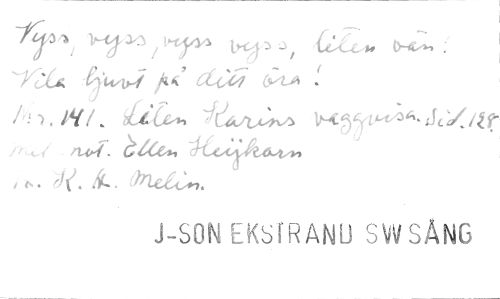 Vyss, vyss, vyss vyss, liten vän!
Vila ljuvt på ditt öra!
Nr. 141. Liten Karins vaggvisa. Sid. 128
mel. not. Ellen Heijkorn
K. H. Melin.
J-SON EKSTRAND SW SÅNG